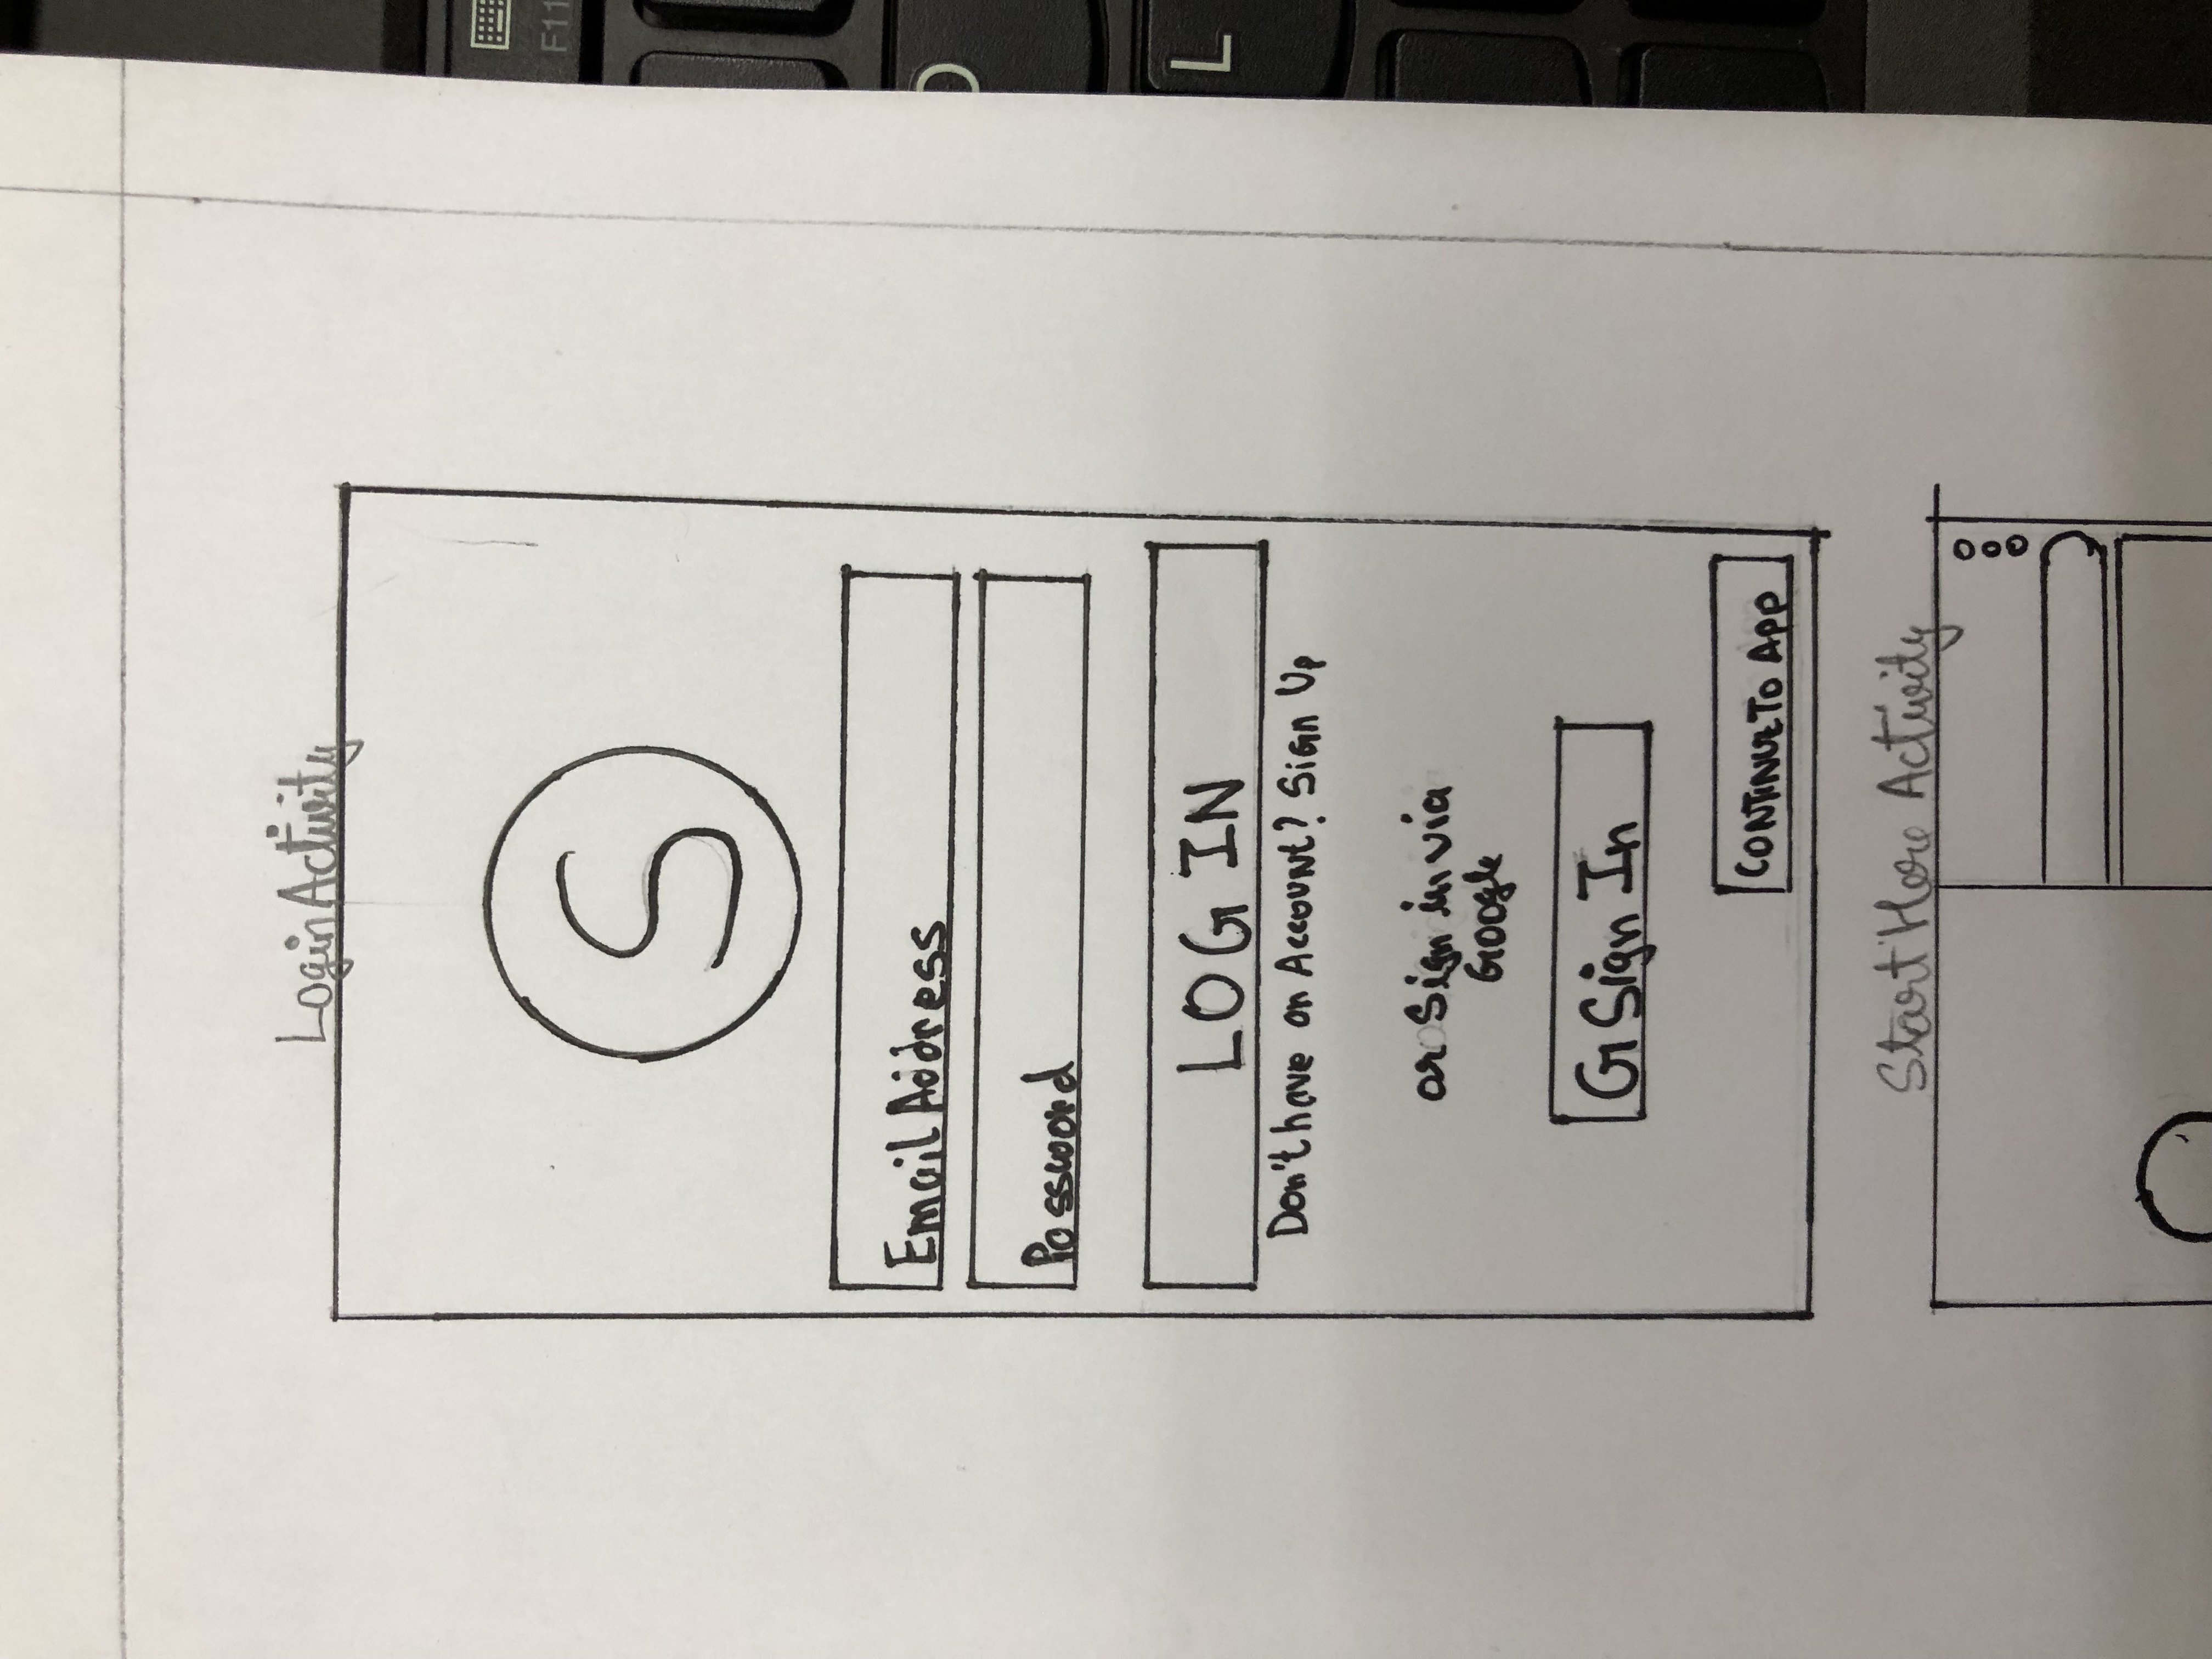 Login Activity
S
Email Address
Password
LOG IN
Don't have an Account? Sign Up
or Sign in via
Google
G Sign In
CONTINUE TO APP
Start Here Activity
F11
L